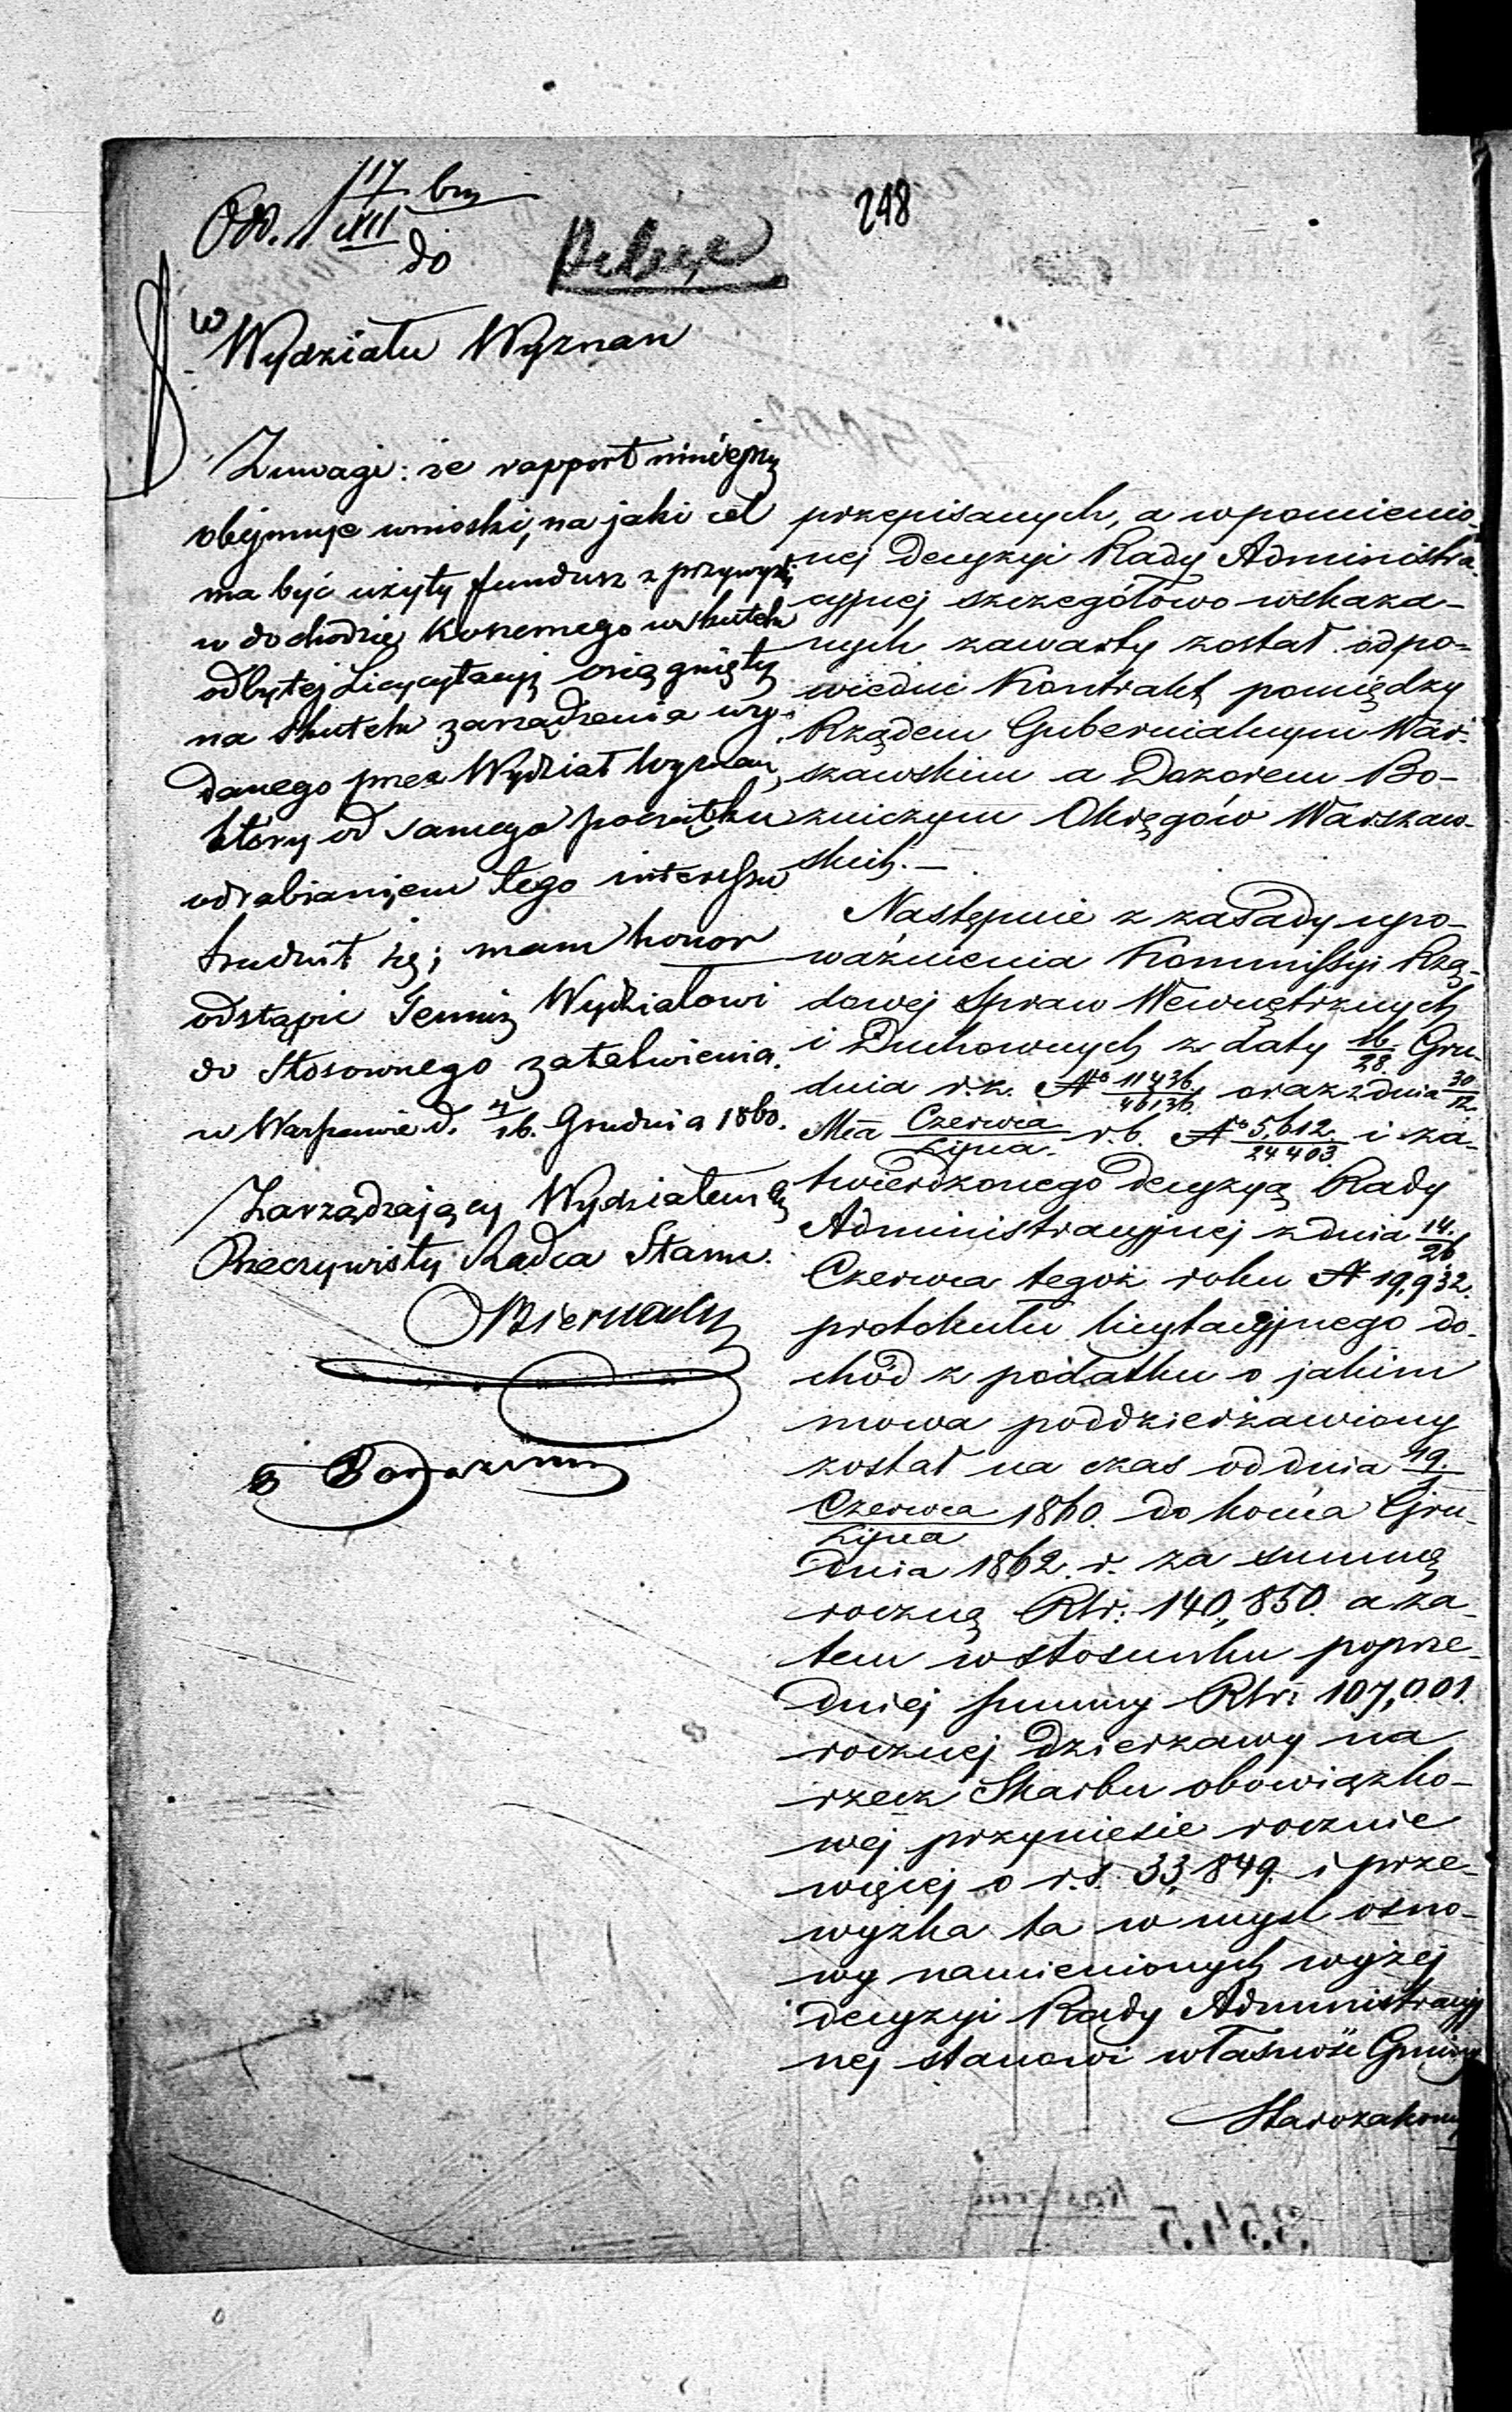 248
Odd. 17/XII bm
do
w Wydziału Wyznań
Z uwagi: że rapport niniejszy
obejmuje wnioski, na jaki cel
ma być użyty fundusz z przewyżki
w dochodzie Koszernego wskutek
odbytej Licycytacyi osiągnięty
na skutek zarządzenia wy-
danego przez Wydział Wyznań,
który od samego początku
odrabianiem tego interessu
trudnił się; mam honor
odstąpić Temuż Wydziałowi
do stosownego załatwienia.
w Warszawie d. 4/16. Grudnia 1860.
Zarządzający Wydziałem
Rzeczywisty Radca Stanu.
przepisanych, a w pomienio-
nej Decyzyi Rady Administra-
cyjnej szczegółowo wskaza-
nych zawarty został odpo-
wiedni Kontrakt pomiędzy
Rządem Gubernialnym War-
szawskim a Dozorem Bo-
żniczym Okręgów Warszaw-
skich. —
Następnie z zasady upo-
ważnienia Kommissyi Rzą-
dowej Spraw Wewnętrznych
i Duchownych z daty 16/28. Gru-
dnia r.z. No 11436/46136. oraz z dnia 30/12.
Mca Czerwca/Lipca r.b. No 5,612/24403. i za-
twierdzonego decyzyą Rady
Administracyjnej z dnia 14./26
Czerwca tegoż roku N 19,932.
protokułu licytacyjnego do-
chód z podatku o jakim
mowa poddzierżawiony
został na czas od dnia 19./1
Czerwca/Lipca 1860. do końca Gru-
dnia 1862. r. za summę
roczną Rsr: 140,850. a za-
tem w stosunku poprze-
dniej summy Rsr: 107,001.
rocznej dzierżawy na
rzecz Skarbu obowiązko-
wej przyniesie rocznie
więcej o r.s. 33,849. i prze-
wyżka ta w myśl osno-
wy namienionych wyżej
decyzyi Rady Administracyj
nej stanowi własność Gminy
Starozakonn